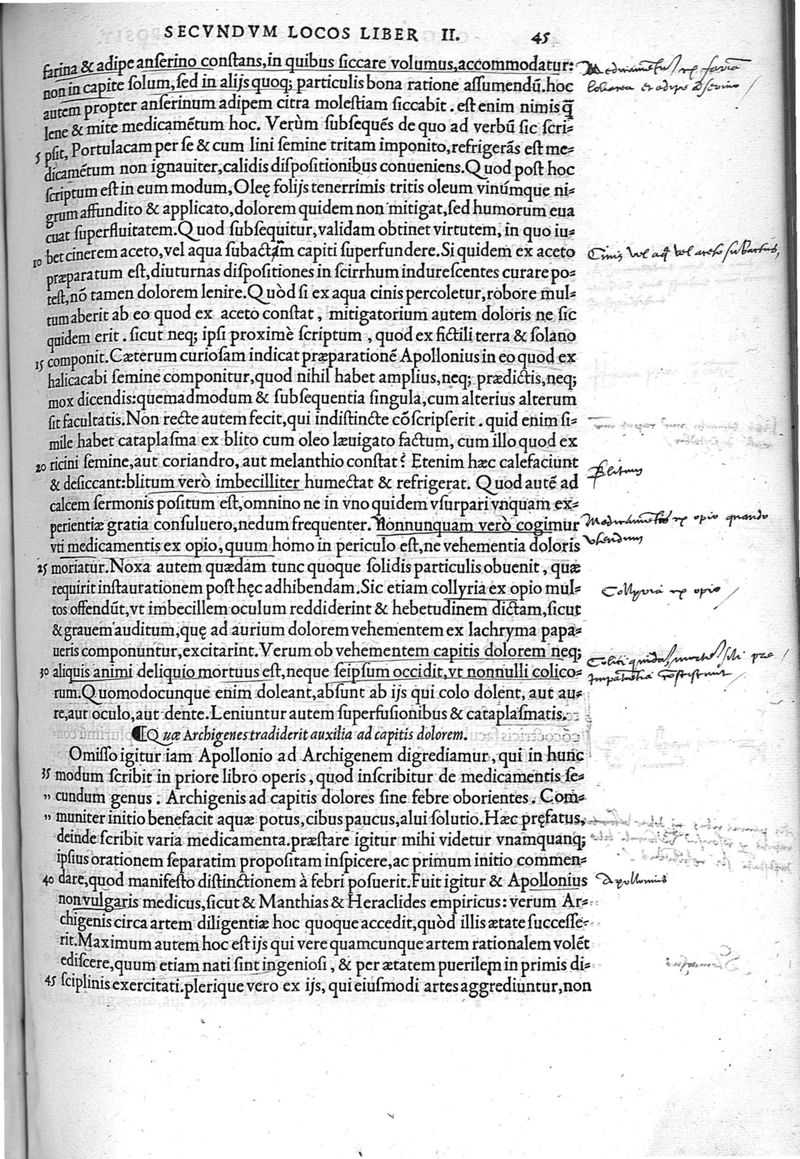 SECVNDVM LOCOS LIBER II. 45
farina & adipe anserino constans, in quibus siccare volumus, accommodatur:
non in capite solum, sed in alijs quoq; particulis bona ratione assumendũ. hoc
autem propter anserinum adipem citra molestiam siccabit. est enim nimis q̃
lene & mite medicamẽtum hoc. Verùm subsequẽs de quo ad verbũ sic scri-
5 psit, Portulacam per se & cum lini semine tritam imponito, refrigerãs est me-
dicamẽtum non ignauiter, calidis dispositionibus conueniens. Quod post hoc
scriptum est in eum modum, Oleę folijs tenerrimis tritis oleum vinúmque ni-
grum affundito & applicato, dolorem quidem non mitigat, sed humorum eua
cuat superfluitatem. Quod subsequitur, validam obtinet virtutem, in quo iu-
10 bet cinerem aceto, vel aqua subactam capiti superfundere. Si quidem ex aceto
præparatum est, diuturnas dispositiones in scirrhum indurescentes curare po-
test, nõ tamen dolorem lenire. Quòd si ex aqua cinis percoletur, robore mul-
tum aberit ab eo quod ex aceto constat, mitigatorium autem doloris ne sic
quidem erit. sicut neq; ipsi proximè scriptum, quod ex fictili terra & solano
15 componit. Cæterum curiosam indicat præparationẽ Apollonius in eo quod ex
halicacabi semine componitur, quod nihil habet amplius, neq; prædictis, neq;
mox dicendis: quemadmodum & subsequentia singula, cum alterius alterum
sit facultatis. Non recte autem fecit, qui indistincte cõscripserit. quid enim si-
mile habet cataplasma ex blito cum oleo læuigato factum, cum illo quod ex
20 ricini semine, aut coriandro, aut melanthio constat? Etenim hæc calefaciunt
& desiccant: blitum verò imbecilliter humectat & refrigerat. Quod autẽ ad
calcem sermonis positum est, omnino ne in vno quidem vsurpari vnquam ex-
perientiæ gratia consuluero, nedum frequenter. Nonnunquam verò cogimur
vti medicamentis ex opio, quum homo in periculo est, ne vehementia doloris
25 moriatur. Noxa autem quædam tunc quoque solidis particulis obuenit, quæ
requirit instaurationem post hęc adhibendam. Sic etiam collyria ex opio mul-
tos offendũt, vt imbecillem oculum reddiderint & hebetudinem dictam, sicut
& grauem auditum, quę ad aurium dolorem vehementem ex lachryma papa-
ueris componuntur, excitarint. Verum ob vehementem capitis dolorem neq;
30 aliquis animi deliquio mortuus est, neque seipsum occidit, vt nonnulli colico-
rum. Quomodocunque enim doleant, absunt ab ijs qui colo dolent, aut au-
re, aut oculo, aut dente. Leniuntur autem superfusionibus & cataplasmatis.
¶Quæ Archigenes tradiderit auxilia ad capitis dolorem.
Omisso igitur iam Apollonio ad Archigenem digrediamur, qui in hunc
35 modum scribit in priore libro operis, quod inscribitur de medicamentis se-
,, cundum genus. Archigenis ad capitis dolores sine febre oborientes. Com-
,, muniter initio benefacit aquæ potus, cibus paucus, alui solutio. Hæc pręfatus,
deinde scribit varia medicamenta. præstare igitur mihi videtur vnamquanq;
ipsius orationem separatim propositam inspicere, ac primum initio commen-
40 dare, quod manifesto distinctionem à febri posuerit. Fuit igitur & Apollonius
non vulgaris medicus, sicut & Manthias & Heraclides empiricus: verum Ar-
chigenis circa artem diligentiæ hoc quoque accedit, quòd illis ætate successe-
rit. Maximum autem hoc est ijs qui vere quamcunque artem rationalem volẽt
ediscere, quum etiam nati sint ingeniosi, & per ætatem puerilem in primis di-
45 sciplinis exercitati. plerique vero ex ijs, qui eiusmodi artes aggrediuntur, non
Blitum
Medicamentis ex opio quando
vtendum
Collyria ex opio
Apollonius